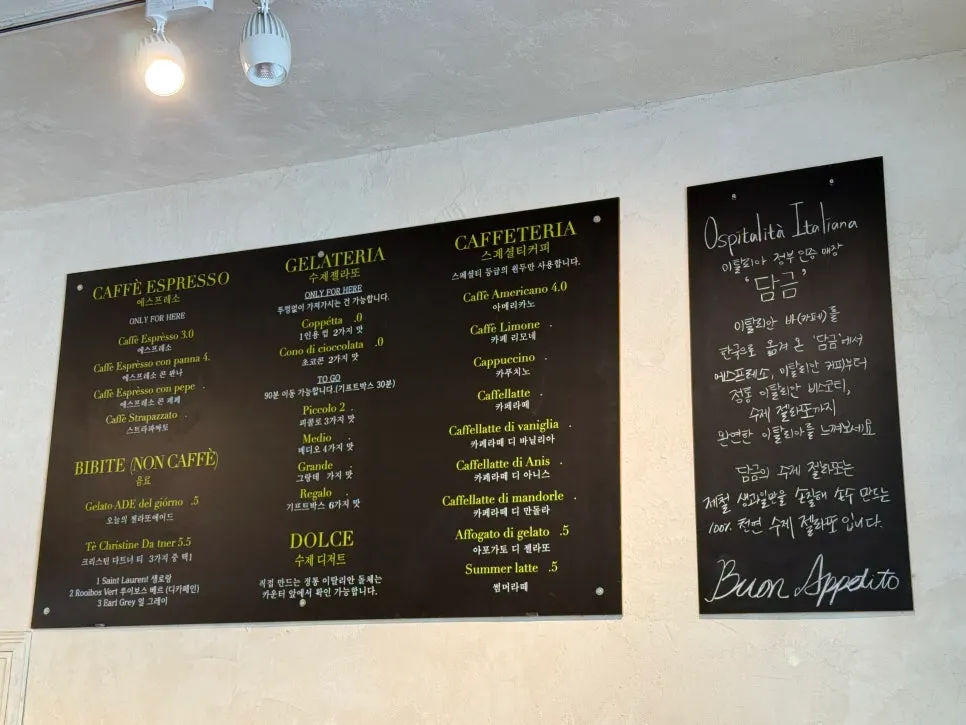 CAFFÈ ESPRESSO
에스프레소
ONLY FOR HERE
Caffè Esprèsso 3.0
에스프레소
Caffè Esprèsso con panna 4.
에스프레소 콘 판나
Caffè Esprèsso con pepe .
에스프레소 콘 페페
Caffè Strapazzato .
스트라파짜토
BIBITE (NON CAFFÈ)
음료
Gelato ADE del giórno .5
오늘의 젤라또에이드
Tè Christine Da tner 5.5
크리스틴 다트너 티 3가지 중 택1
1 Saint Laurent 생로랑
2 Rooibos Vert 루이보스 베르 (디카페인)
3 Earl Grey 얼 그레이
GELATERIA
수제젤라또
ONLY FOR HERE
뚜껑없이 가져가시는 건 가능합니다.
Coppétta .0
1인용 컵 2가지 맛
Cono di cioccolata .0
초코콘 2가지 맛
TO GO
90분 이동 가능합니다.(기프트박스 30분)
Piccolo 2 .
피콜로 3가지 맛
Medio .
메디오 4가지 맛
Grande .
그랑데 가지 맛
Regalo .
기프트박스 6가지 맛
DOLCE
수제 디저트
직접 만드는 정통 이탈리안 돌체는
카운터 앞에서 확인 가능합니다.
CAFFETERIA
스페셜티커피
스페셜티 등급의 원두만 사용합니다.
Caffè Americano 4.0
아메리카노
Caffè Limone .
카페 리모네
Cappuccino .
카푸치노
Caffellatte .
카페라떼
Caffellatte di vaniglia .
카페라떼 디 바닐리아
Caffellatte di Anis .
카페라떼 디 아니스
Caffellatte di mandorle .
카페라떼 디 만돌라
Affogato di gelato .5
아포가토 디 젤라또
Summer latte .5
썸머라떼
Ospitalità Italiana
이탈리아 정부 인증 매장
'담금'
이탈리안 바(카페)를
한국으로 옮겨 온 '담금'에서
에스프레소, 이탈리안 커피부터
정통 이탈리안 비스코티,
수제 젤라또까지
완연한 이탈리아를 느껴보세요
담금의 수제 젤라또는
제철 생과일만을 손질해 손수 만드는
100% 천연 수제 젤라또 입니다.
Buon Appetito